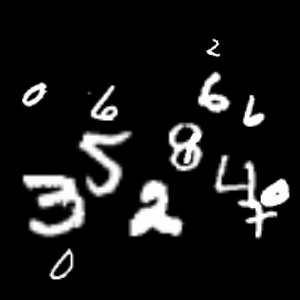 2
0 6 6 6
5 8
3 2 4 0
7
0